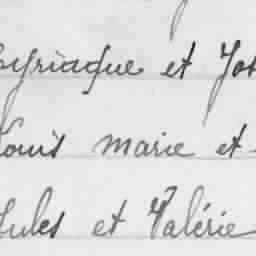 Cyriaque et Jos
Louis marie et
Jules et Valérie